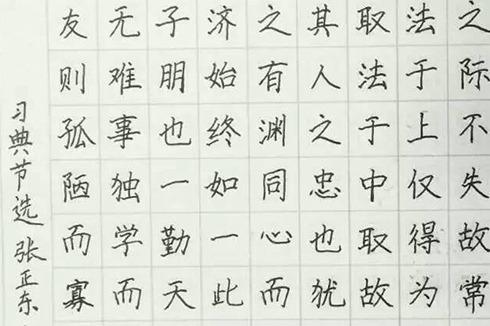 之际不失故常
法于上仅得为
取法于中取故
其人之忠也犹
之有渊同心而
济始终如一此
子朋也一勤天
无难事独学而
友则孤陋而寡
习典节选 张正东